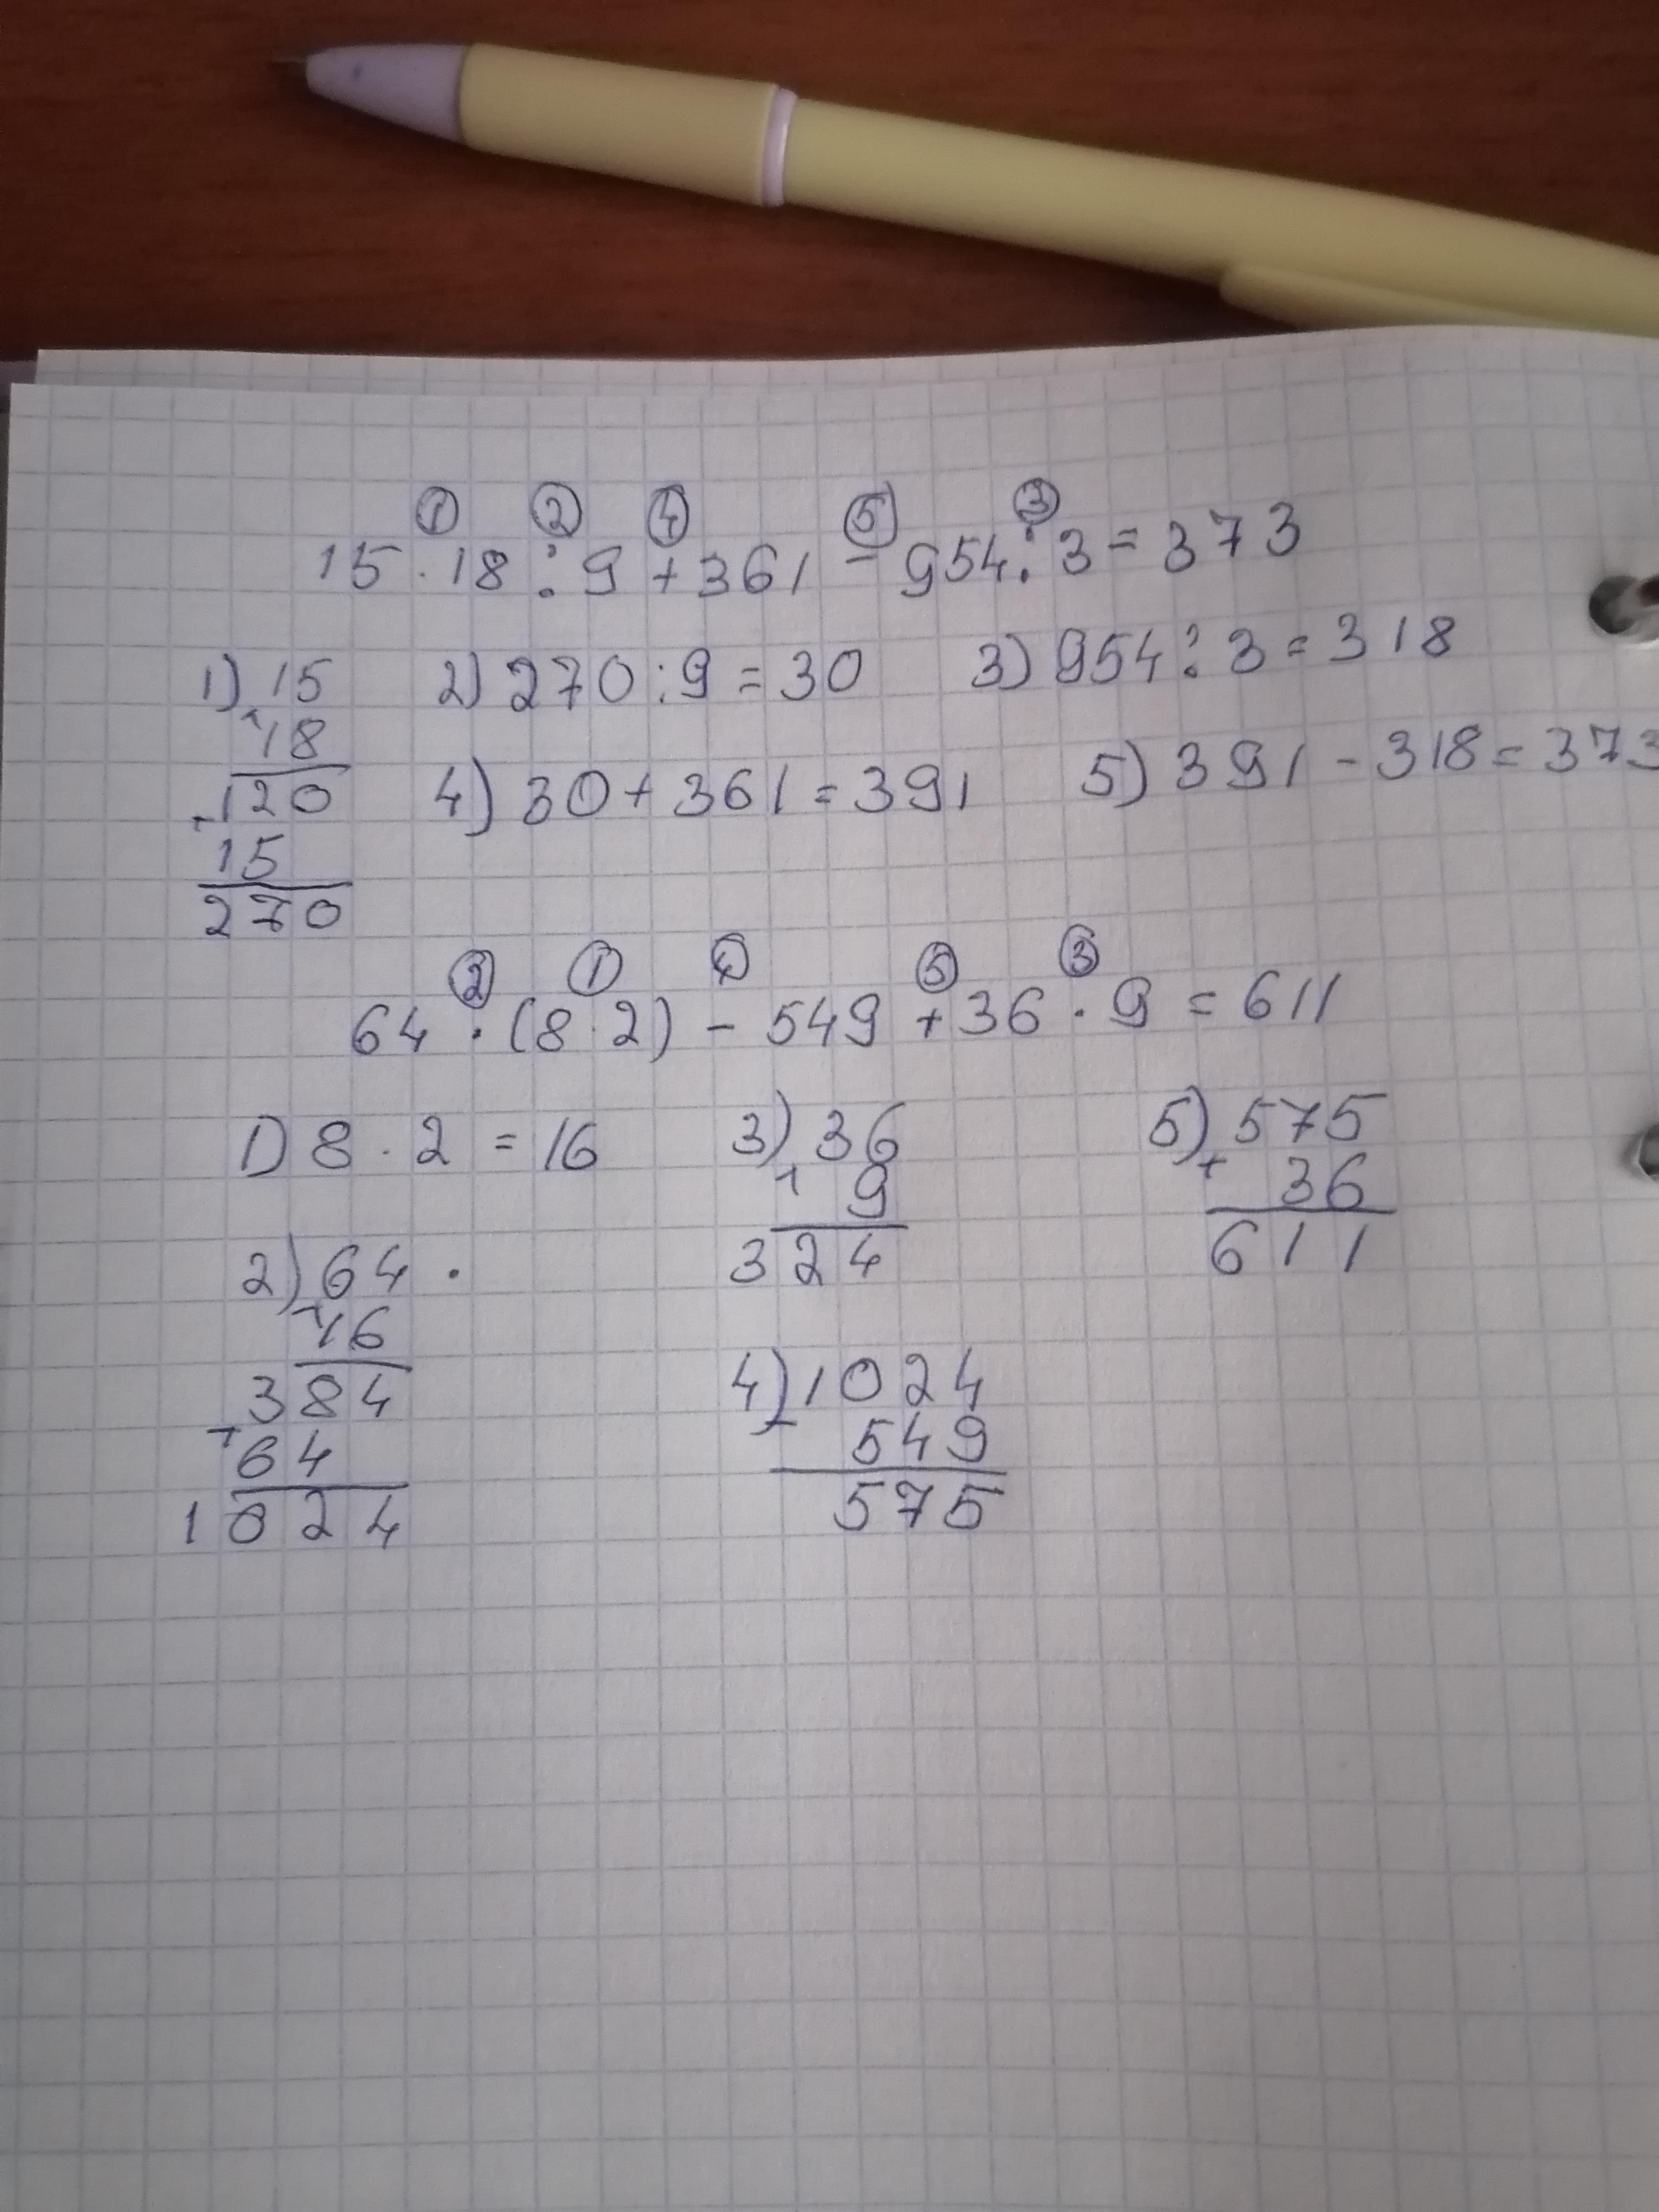 ① ② ④ ⑤ ③
15 · 18 : 9 + 361 - 954 : 3 = 373
1) 15
18
120
+
15
270
2) 270 : 9 = 30
3) 954 : 3 = 318
4) 30 + 361 = 391
5) 391 - 318 = 373
② ① ④ ⑤ ③
64 · (8 · 2) - 549 + 36 · 9 = 611
1) 8 · 2 = 16
2) 64 ·
16
384
+
64
1024
3) 36
9
324
4) 1024
-
549
575
5) 575
+
36
611